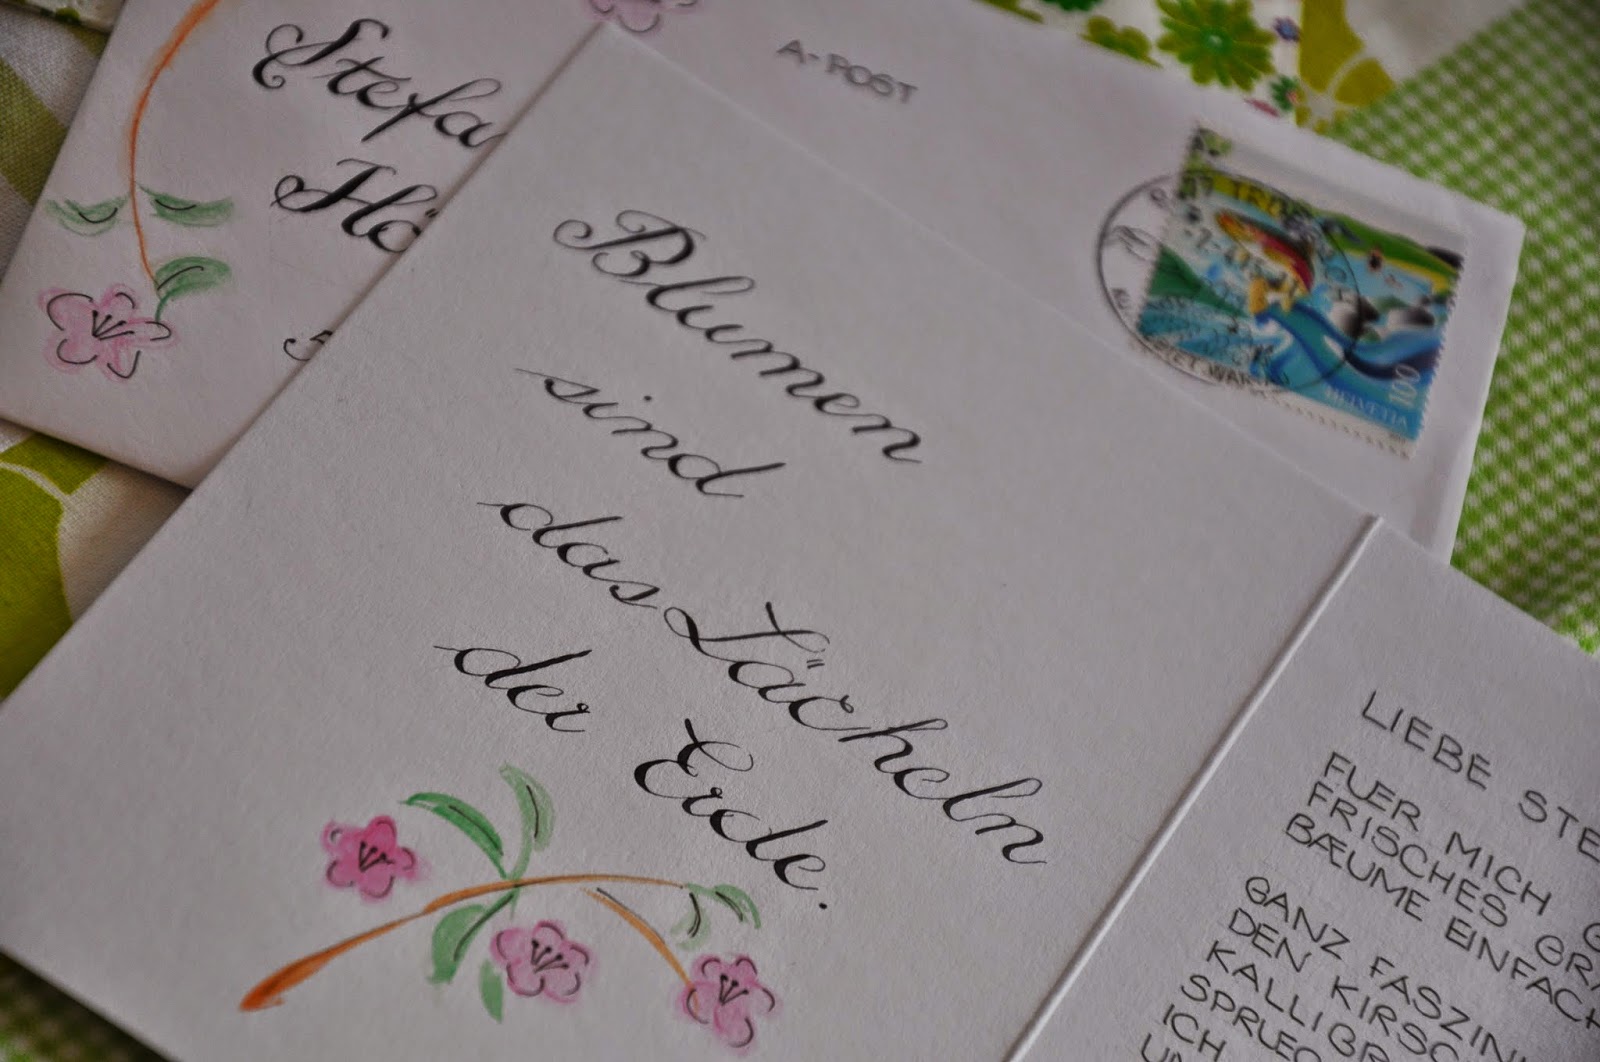 Stefa
Hö
A-POST
HELVETIA
100
Blumen
sind
das Lächeln
der Erde.
LIEBE STE
FUER MICH G
FRISCHES GRA
BÆUME EINFACH
GANZ FASZIN
DEN KIRSC
KALLIGR
SPRUEC
ICH
UN